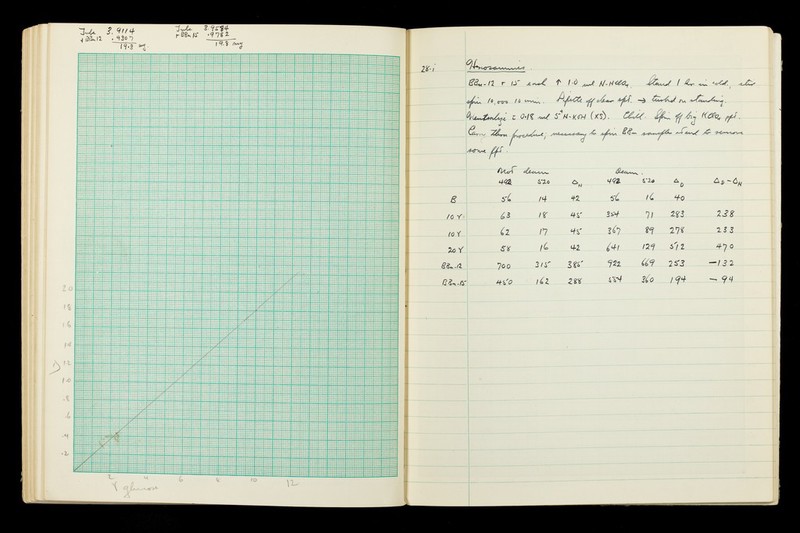 Tube 3.9114
+ BBn.12 .9307
19.3 mg
Tube 3.9584
+ BBn 15 .9782
19.8 mg
20
18
16
14
12
10
.8
.6
.4
.2
2 4 6 8 10 12
γ glucose
28.i Hexosamines
BBn.12 + 15 each ↑ 1.0 ml N.HClO4. Stand 1 hr in cold, after
spin 10,000 15 min. Pipette off clear spt. → turbid on standing.
0.18 ml 5N.KOH (K5). Chill. Spin off KClO4 ppt.
procedure, necessary to spin BBn samples at end to remove
some ppt.
Not deamin Deamin.
492 520 ΔN 492 520 ΔD ΔD-ΔN
B 56 14 42 56 16 40
10γ 63 18 45 354 71 283 238
10γ 62 17 45 367 89 278 233
20γ 58 16 42 641 129 512 470
BBn.12 700 315 385 922 669 253 -132
BBn.15 450 162 288 554 360 194 -94